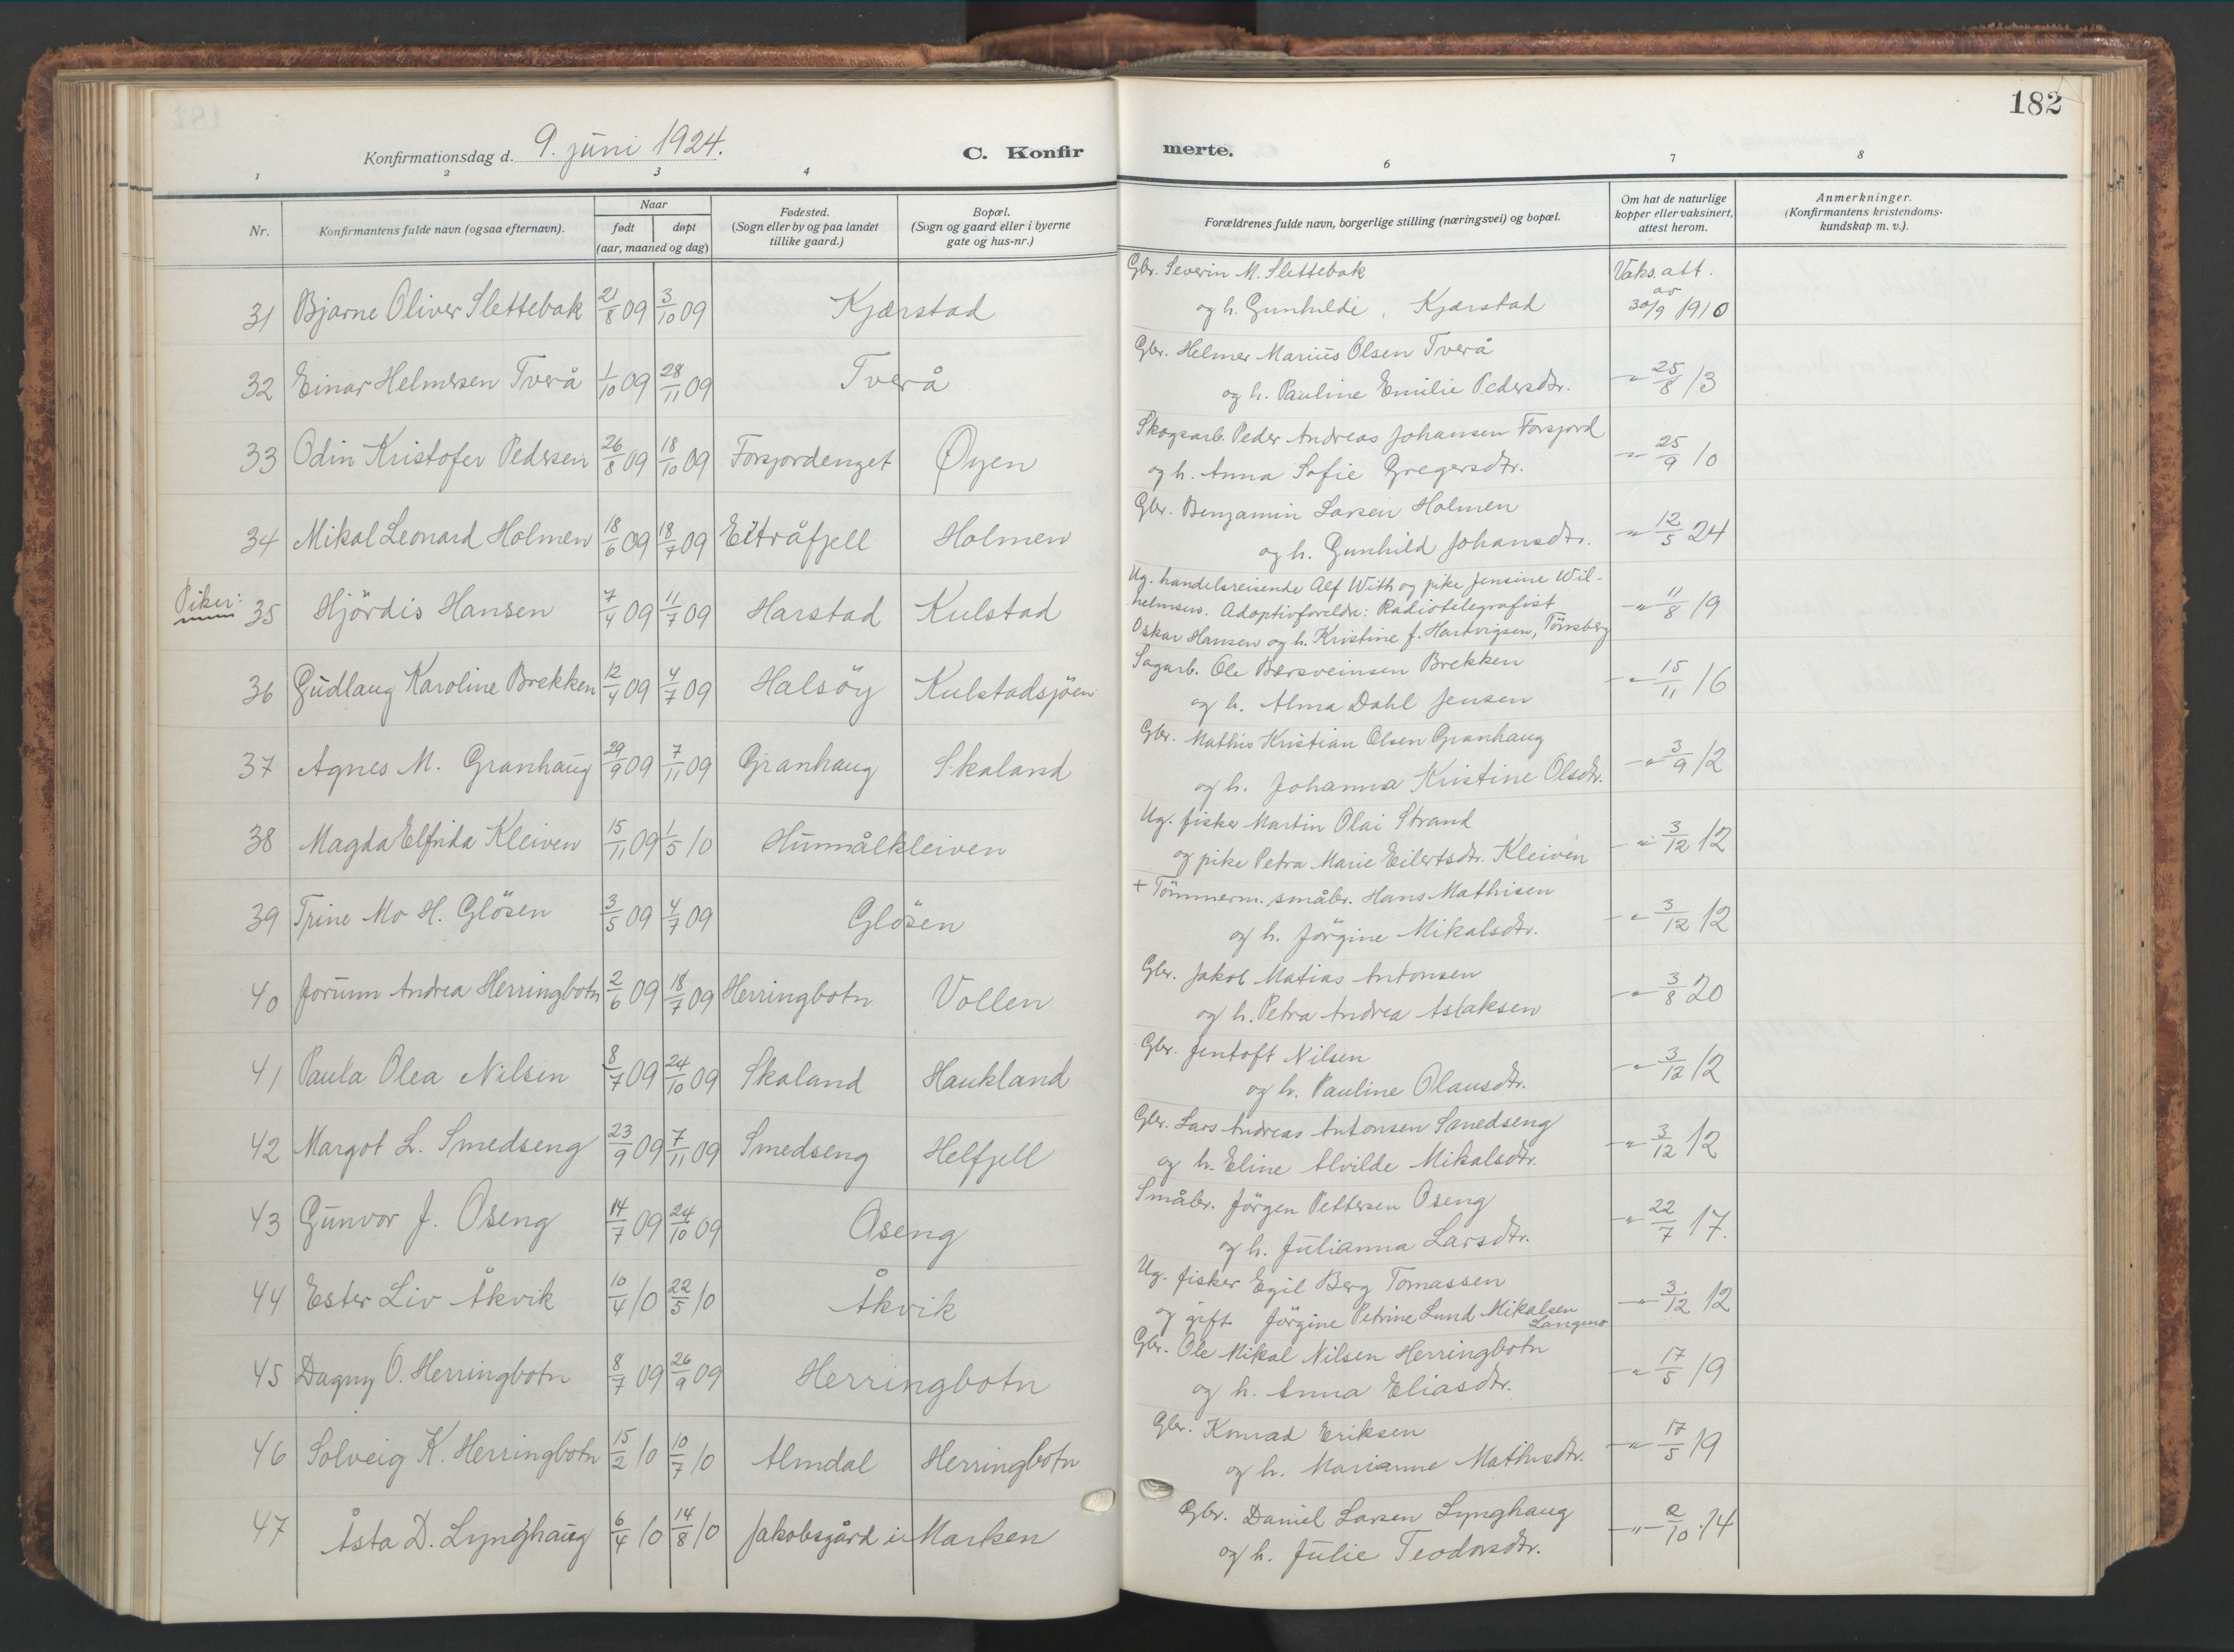 182
Konfirmationsdag d. 9. juni 1924. C. Konfir merte.
1 2 3 4 6 7 8
Nr. Konfirmantens fulde navn (ogsaa efternavn). Naar født døpt (aar, maaned og dag) Fødested. (Sogn eller by og paa landet tillike gaard.) Bopæl. (Sogn og gaard eller i byerne gate og hus-nr.) Forældrenes fulde navn, borgerlige stilling (næringsvei) og bopæl. Om hat de naturlige kopper eller vaksinert, attest herom. Anmerkninger. (Konfirmantens kristendoms-kundskap m. v.).
31 Bjarne Oliver Slettebak 21/8 09 3/10 09 Kjærstad Gbr. Severin M. Slettebak og h. Gunhilde, Kjærstad Vaks.att. av 30/9 1910
32 Einar Helmersen Tverå 1/10 09 28/11 09 Tverå Gbr. Helmer Marius Olsen Tverå og h. Pauline Emilie Pedersdtr. -"- 25/8 13
33 Odin Kristofer Pedersen 26/8 09 18/10 09 Forsjordenget Øyen Skogsarb. Peder Andreas Johansen Forsjord og h. Anna Sofie Gregersdtr. -"- 25/9 10
34 Mikal Leonard Holmen 18/6 09 18/7 09 Eitråfjell Holmen Gbr. Benjamin Larsen Holmen og h. Gunhild Johansdtr. -"- 12/5 24
Piker:
35 Hjördis Hansen 7/4 09 11/7 09 Harstad Kulstad Ug. handelsreisende Alf With og pike Jensine Wilhelmsen. Adoptivforeldre: Radiotelegrafist Oskar Hansen og h. Kristine f. Hartvigsen, Tönsberg -"- 11/8 19
36 Gudlaug Karoline Brekken 12/4 09 4/7 09 Halsöy Kulstadsjöen Sagarb. Ole Bersveinsen Brekken og h. Alma Dahl Jensen -"- 15/11 16
37 Agnes M. Granhaug 29/9 09 7/11 09 Granhaug Skaland Gbr. Mathis Kristian Olsen Granhaug og h. Johanna Kristine Olsdtr. -"- 3/9 12
38 Magda Elfrida Kleiven 15/11 09 1/5 10 Hunnålkleiven Ug. fisker Martin Olai Strand og pike Petra Marie Eilertsdtr. Kleiven -"- 3/12 12
39 Trine Mo H. Glösen 3/5 09 4/7 09 Glösen + Tömmerm. småbr. Hans Mathisen og h. Jörgine Mikalsdtr. -"- 3/12 12
40 Jorunn Andrea Herringbotn 2/6 09 18/7 09 Herringbotn Vollen Gbr. Jakob Matias Antonsen og h. Petra Andrea Aslaksen -"- 3/8 20
41 Paula Olea Nilsen 8/7 09 24/10 09 Skaland Haukland Gbr. Jentoft Nilsen og h. Pauline Olausdtr. -"- 3/12 12
42 Margot L. Smedseng 23/9 09 7/11 09 Smedseng Helfjell Gbr. Lars Andreas Antonsen Smedseng og h. Eline Alvilde Mikalsdtr. -"- 3/12 12
43 Gunvor J. Oseng 14/7 09 24/10 09 Oseng Småbr. Jörgen Pettersen Oseng og h. Julianna Larsdtr. -"- 22/7 17.
44 Ester Liv Åkvik 10/4 10 22/5 10 Åkvik Ug. fisker Egil Berg Tomassen og gift Jörgine Petrine Lund Mikalsen Langmo -"- 3/12 12
45 Dagny O. Herringbotn 8/7 09 26/9 09 Herringbotn Gbr. Ole Mikal Nilsen Herringbotn og h. Anna Eliasdtr. -"- 17/5 19
46 Solveig K. Herringbotn 15/2 10 10/7 10 Almdal Herringbotn Gbr. Konrad Eriksen og h. Marianne Mathisdtr. -"- 17/5 19
47 Åsta D. Lynghaug 6/4 10 14/8 10 Jakobsgård i Marken Gbr. Daniel Larsen Lynghaug og h. Julie Teodorsdtr. -"- 2/10 14